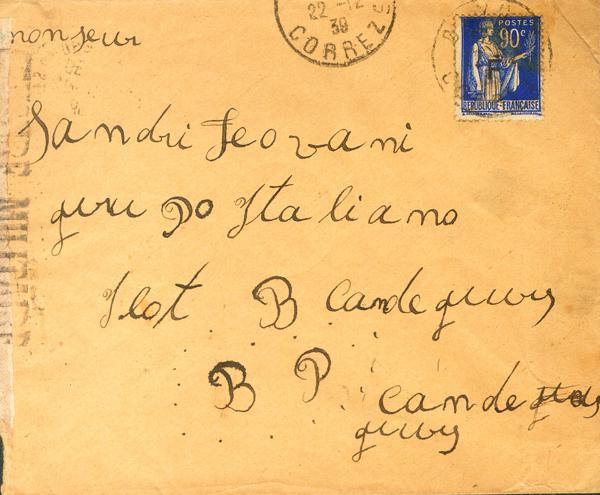 monseur
22 -12
39
CORREZ
POSTES
90c
F
REPUBLIQUE-FRANÇAISE
Sandri Jeovani
guru po Italiano
Ilot B Cande gurs
B P. Cande
gurs